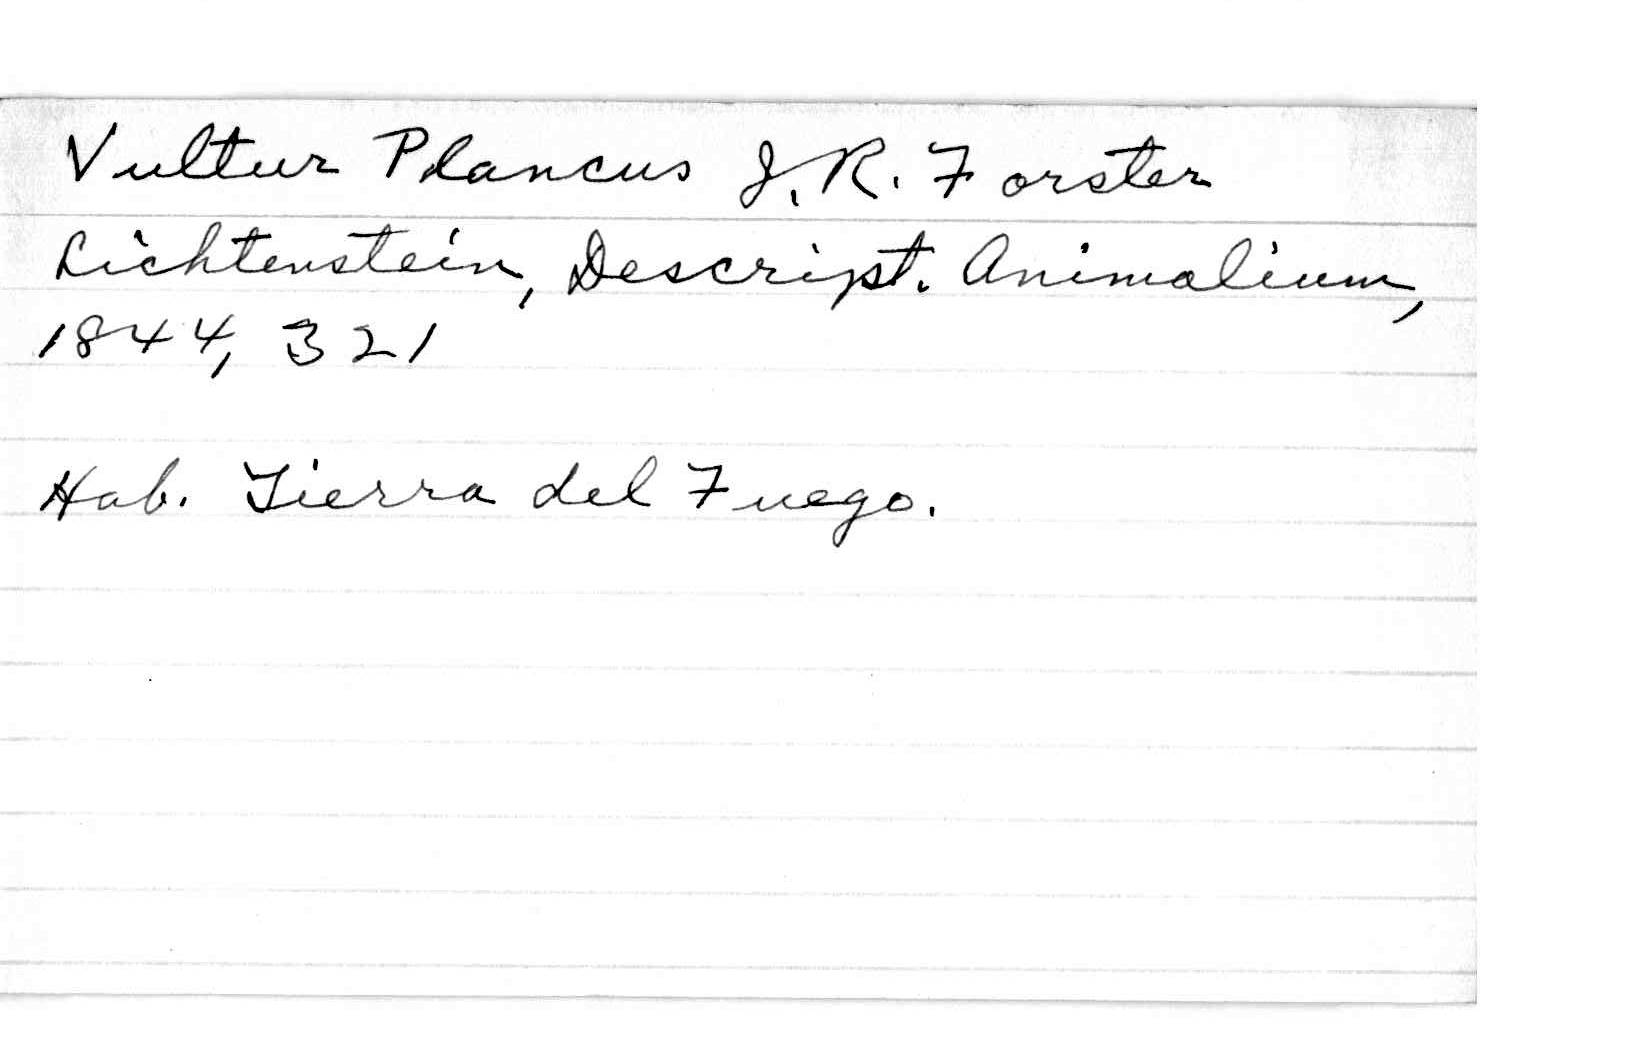 Vultur Plancus J. R. Forster
Lichtenstein, Descript. Animalium,
1844, 321
Hab. Tierra del Fuego.